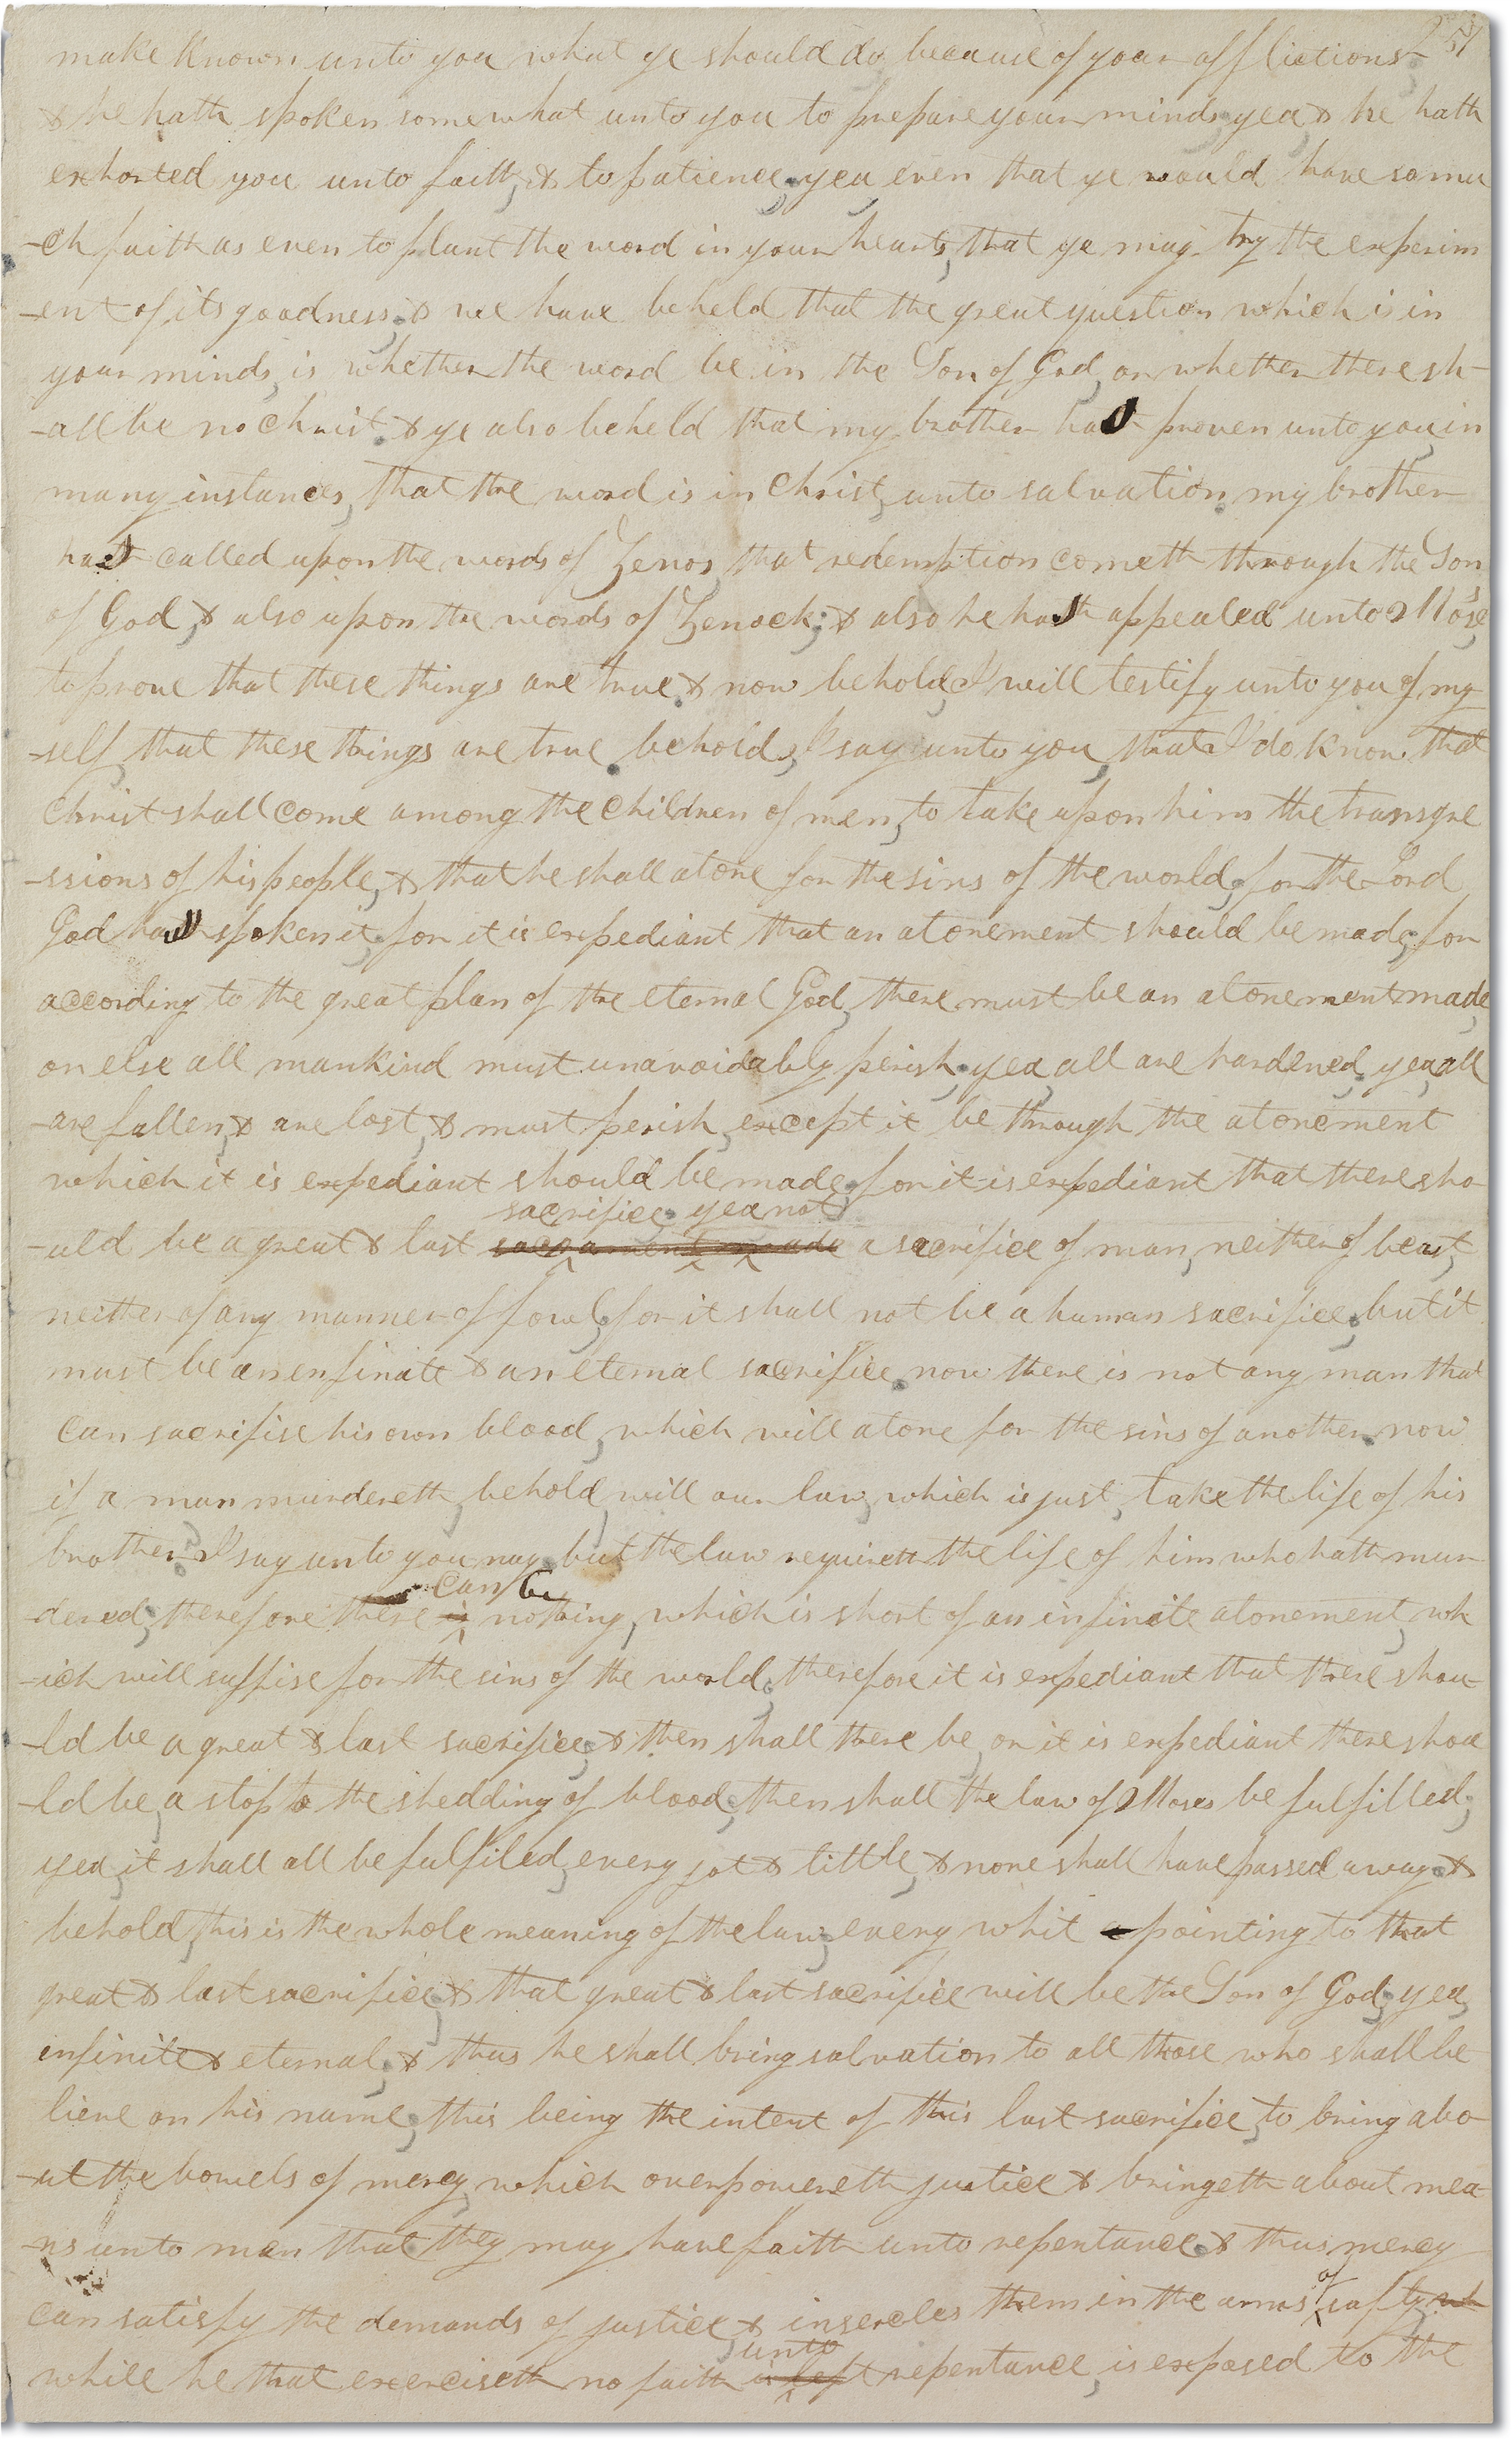 257
make known unto you what ye should do because of your afflictions
& he hath spoken somewhat unto you to prepare your minds, yea & he hath
exhorted you unto faith, & to patience, yea even that ye would have so mu
-ch faith as even to plant the word in your hearts, that ye may try the experim
-ent of its goodness; & we have beheld that the great question which is in
your minds, is whether the word be in the Son of God, or whether there sh-
-all be no Christ. & ye also beheld that my brother has proven unto you, in
many instances, that the word is in Christ, unto salvation. my brother
has called upon the words of Zenos, that redemption cometh through the Son
of God, & also upon the words of Zenock; & also he has appealed unto Moses,
to prove that these things are true. & now behold, I will testify unto you of my
-self, that these things are true. behold, I say unto you, that I do know that
Christ shall come among the children of men, to take upon him the transgre
-ssions of his people, & that he shall atone for the sins of the world, for the Lord
God hath spoken it; for it is expediant that an atonement should be made, for
according to the great plan of the eternal God, there must be an atonement made,
or else all mankind must unavoidably perish; yea, all are hardened, yea, all
-are fallen, & are lost, & must perish, except it be through the atonement
which it is expediant should be made; for it is expediant that there sho-
sacrifice yea not
-uld be a great & last sacrament made a sacrifice of man, neither of beast,
neither of any manner of fowl, for it shall not be a human sacrifice; but it
must be an enfinite & an eternal sacrifice. now there is not any man that
can sacrifise his own blood, which will atone for the sins of another. now
if a man murdereth, behold, will our law, which is just, take the life of his
brother? I say unto you nay, but the law requireth the life of him who hath mur
can be
-dered; therefore there is nothing, which is short of an infinite atonement, wh
-ich will suffise for the sins of the world; therefore it is expediant that there shou-
-ld be a great & last sacrifice; & then shall there be, or it is expediant there shou
-ld be, a stop to the shedding of blood; then shall the law of Moses be fulfilled;
yea, it shall all be fulfiled, every jot & tittle, & none shall have passed away. &
behold, this is the whole meaning of the law; every whit a pointing to that
great & last sacrifice; & that great & last sacrifice will be the Son of God; yea,
infinite & eternal; & thus he shall bring salvation to all those who shall be
lieve on his name; this being the intent of this last sacrifice, to bring abo-
-ut the bowels of mercy, which overpowereth justice & bringeth about mea
-ns unto man that they may have faith unto repentance. & thus mercy
of
can satisfy the demands of justice & insercles them in the arms safty wh
unto
while he that exerciseth no faith is left repentance, is exposed to the